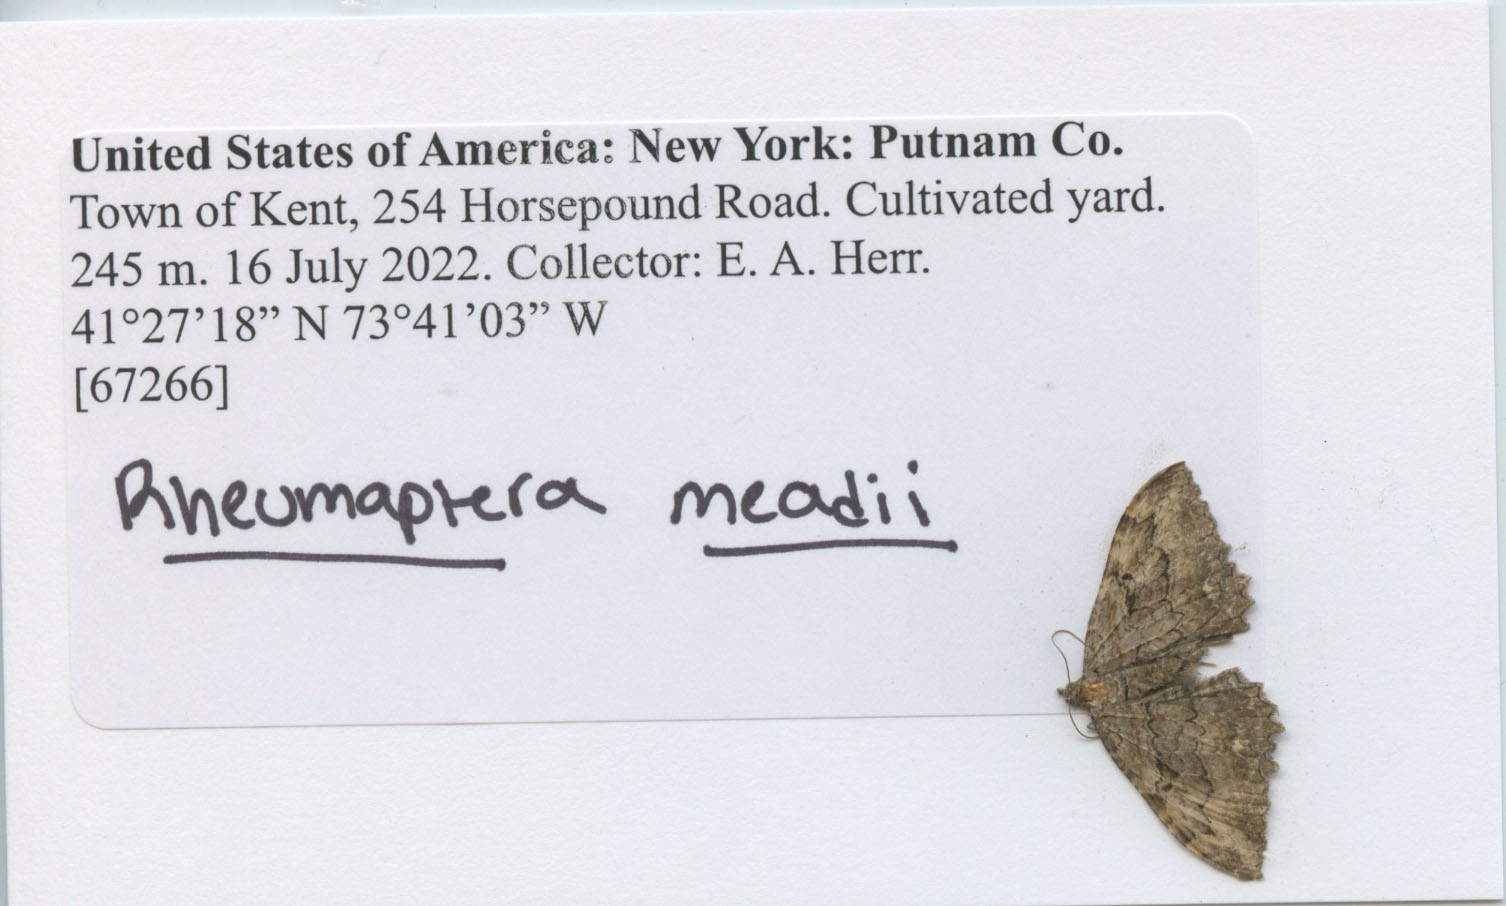 United States of America: New York: Putnam Co.
Town of Kent, 254 Horsepound Road. Cultivated yard.
245 m. 16 July 2022. Collector: E. A. Herr.
41°27’18” N 73°41’03” W
[67266]
Rheumaptera meadii